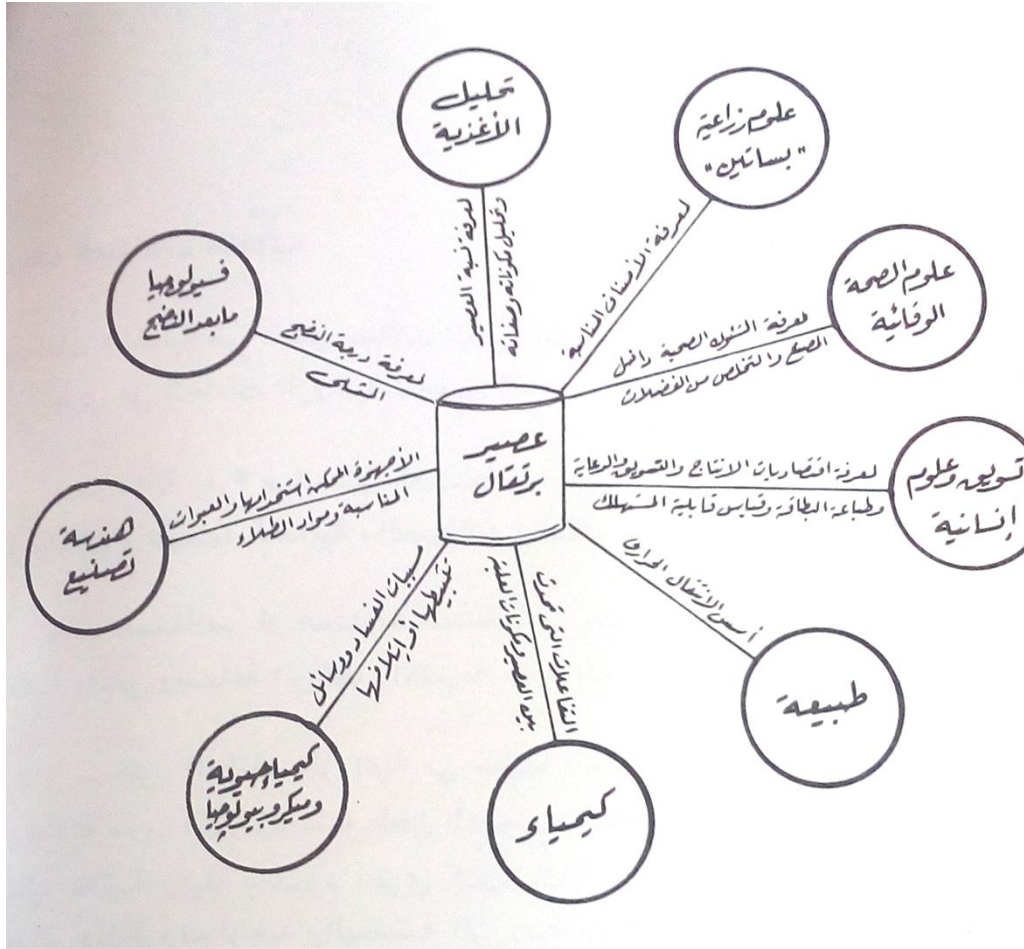 تحليل
الأغذية
لمعرفة نسبة العصير
وتحليل مكوناته وصفاته
علوم زراعية
"بساتين"
لمعرفة الأصناف المناسبة
علوم الصحة
الوقائية
لمعرفة الشئون الصحية داخل
المصنع والتخلص من الفضلات
تسويق وعلوم
إنسانية
لمعرفة اقتصاديات الانتاج والتسويق والدعاية
وطباعة البطاقة وقياس قابلية المستهلك
طبيعة
أسس الانتقال الحرارى
كيمياء
التفاعلات التى تحدث
بين العصير ومكونات العلبة
كيمياء حيوية
وميكروبيولوجيا
مسببات الفساد ووسائل
تثبيطها أو إتلافها
هندسة
تصنيع
الأجهزة الممكن استخدامها والعبوات
المناسبة ومواد الطلاء
فسيولوجيا
ما بعد النضج
لمعرفة درجة النضج
المثلى
عصير
برتقال